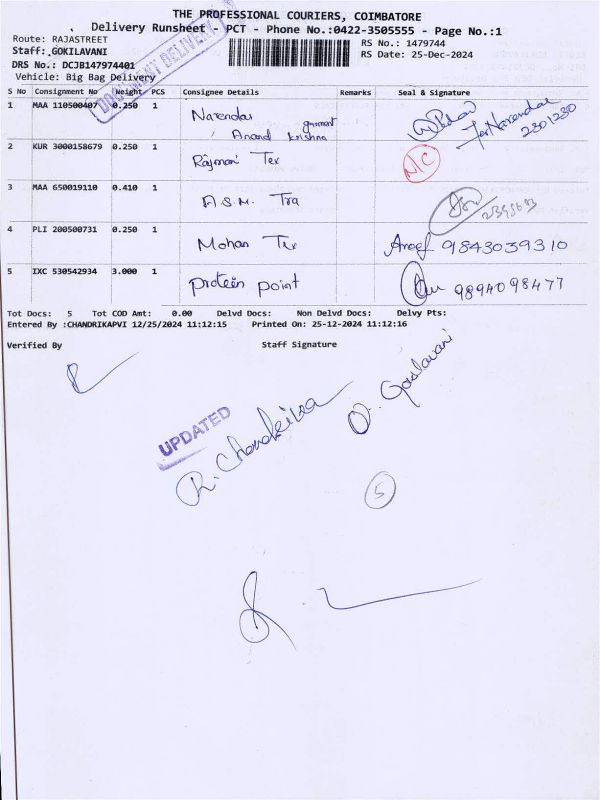 THE PROFESSIONAL COURIERS, COIMBATORE
Delivery Runsheet - PCT - Phone No.:0422-3505555 - Page No.:1
Route: RAJASTREET
RS No.: 1479744
Staff: GOKILAVANI
RS Date: 25-Dec-2024
DRS No.: DCJB147974401
Vehicle: Big Bag Delivery
DOCUMENT DELIVERY
S No Consignment No Weight PCS Consignee Details Remarks Seal & Signature
1 MAA 110500407 0.250 1 Narendar garment
Anand Krishna
For Narendar
2301230
2 KUR 3000158679 0.250 1 Rajmani Tex N/C
3 MAA 650019110 0.410 1 A.S.M. Tra
4 PLI 200500731 0.250 1 Mohan Tex Areef 9843039310
5 IXC 530542934 3.000 1 protein point 9894098477
Tot Docs: 5 Tot COD Amt: 0.00 Delvd Docs: Non Delvd Docs: Delvy Pts:
Entered By :CHANDRIKAPVI 12/25/2024 11:12:15 Printed On: 25-12-2024 11:12:16
Verified By Staff Signature
UPDATED
R. Chandrika
V. Gokilavani
5